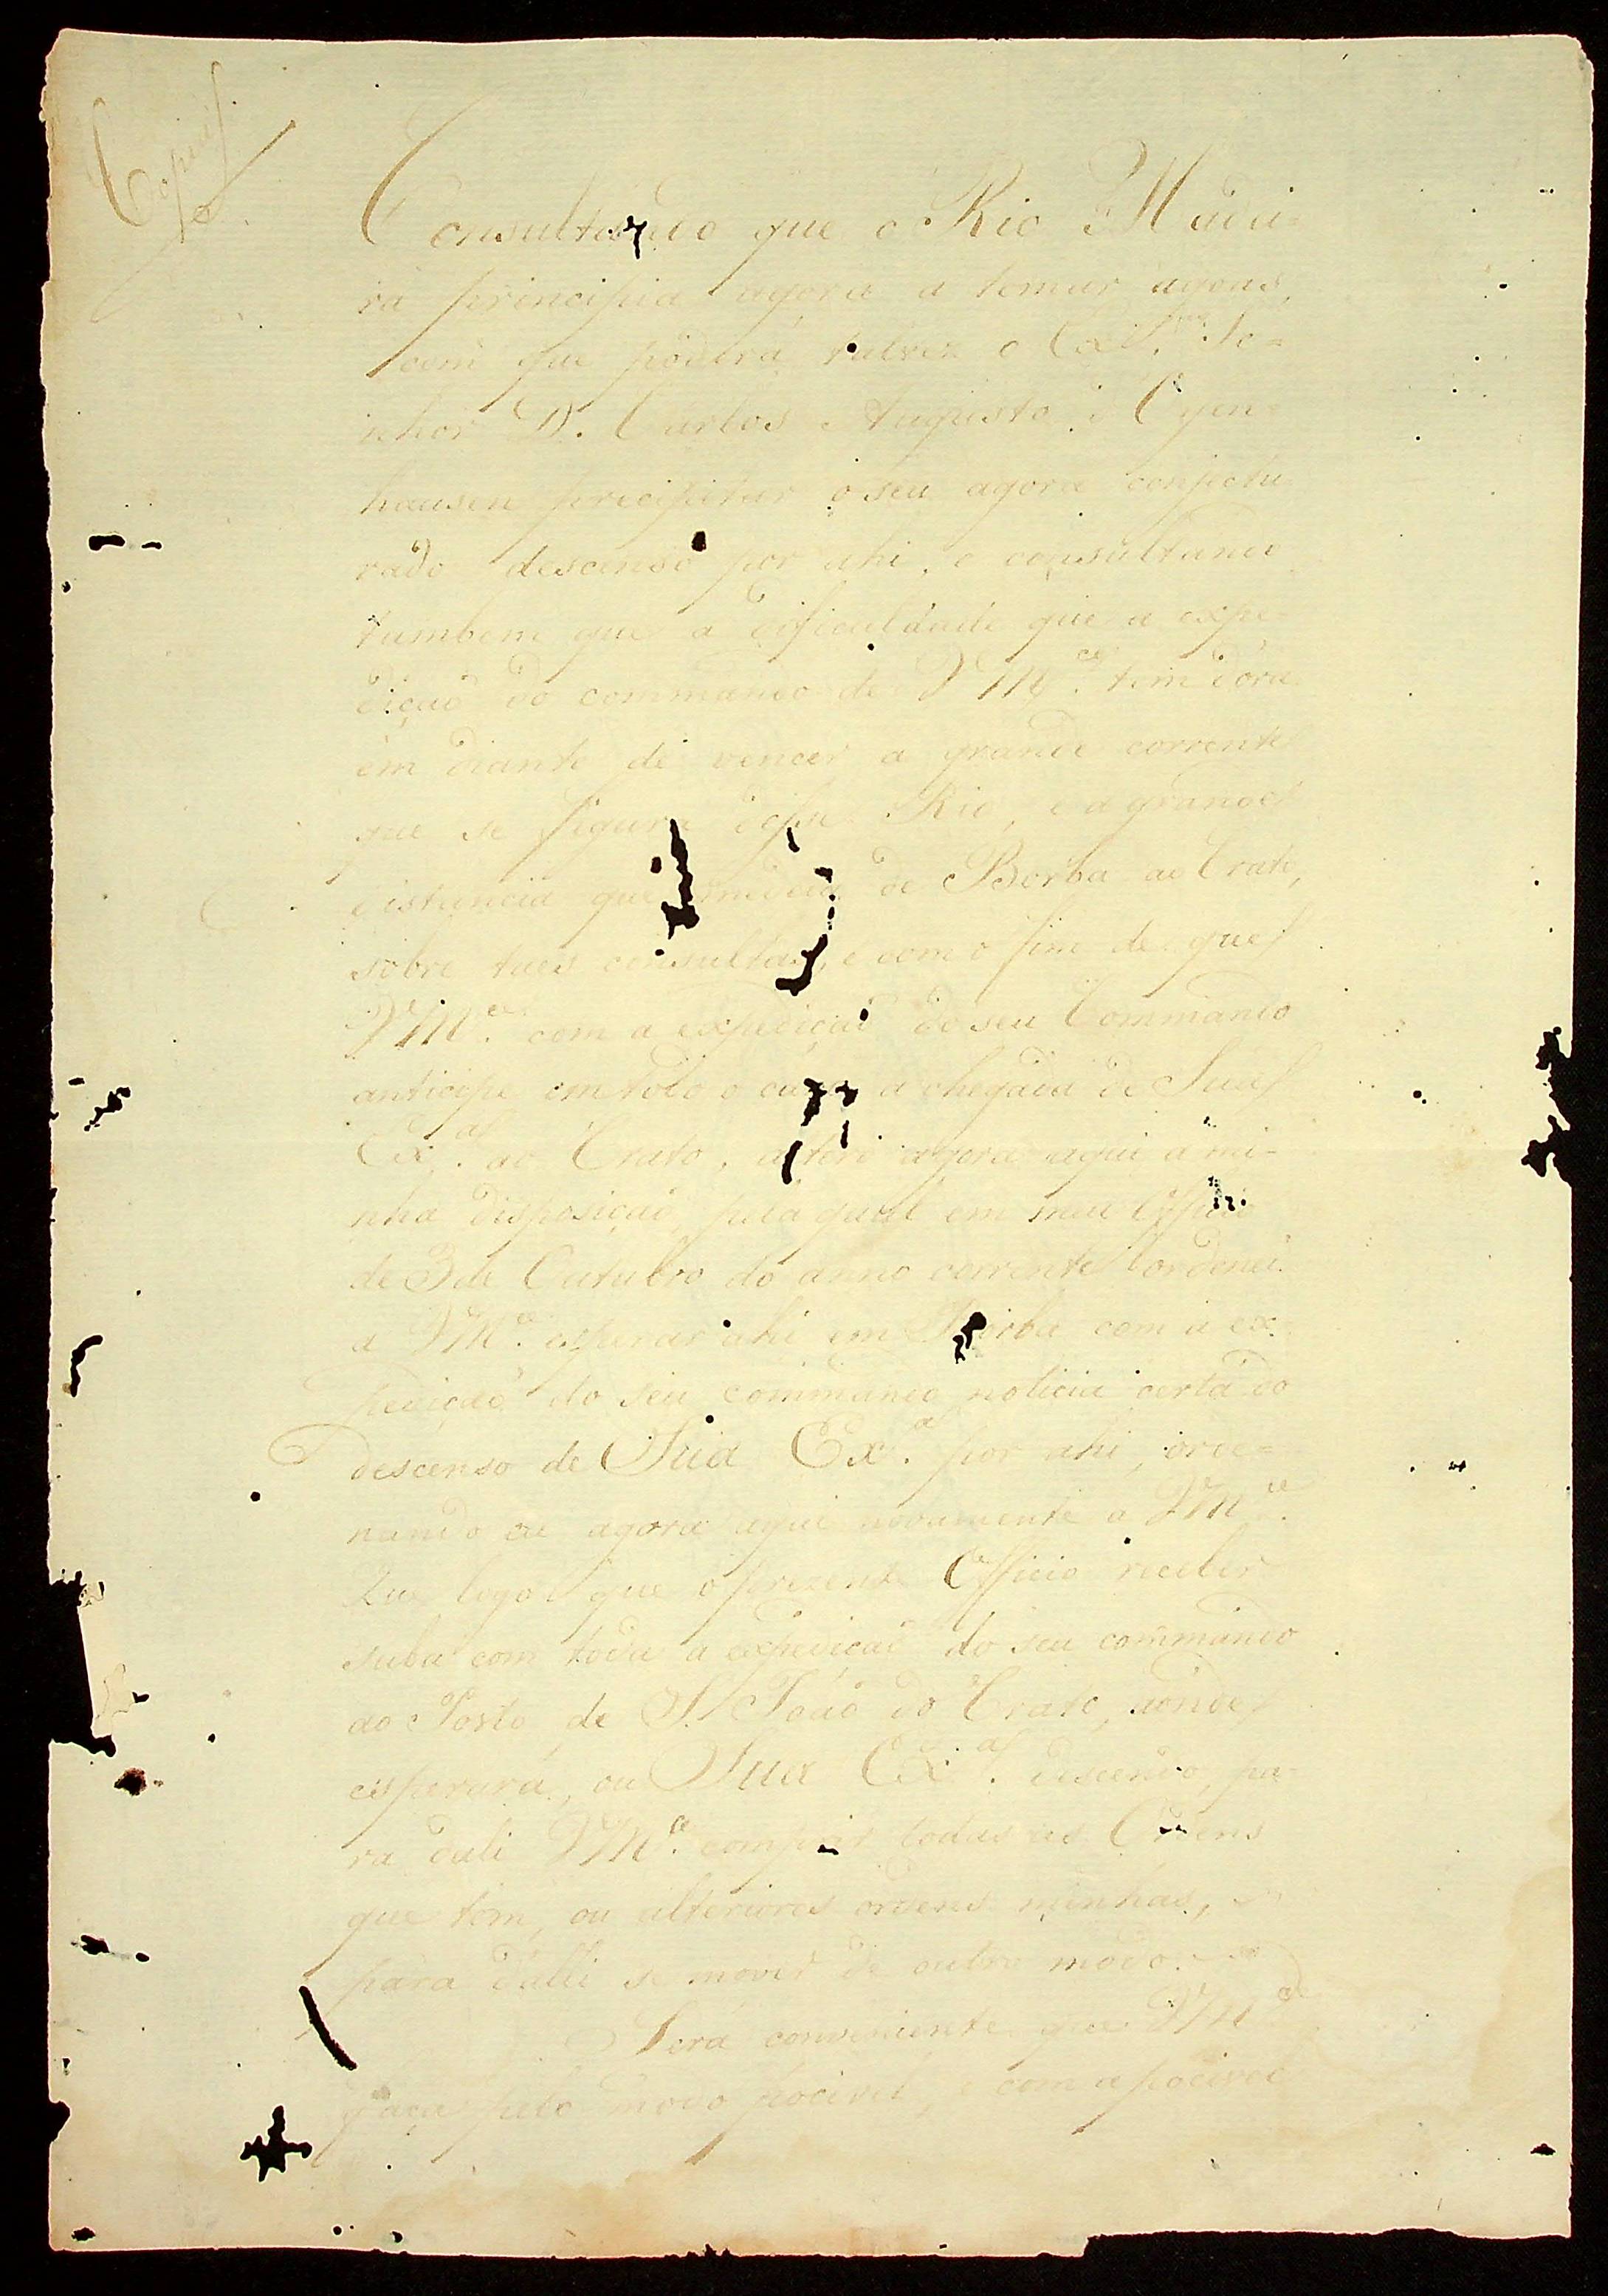 Copia
Consultando que o Rio Madei-
ra principia agora a tomar agoas,
com que poderá talvez o Ex.mo Se-
nhor D. Carlos Augusto Oyen-
hausen precipitar o seu agora conjectu
rado descenso por ahi, e consultando
tambem que a dificuldade que a expe-
dição do commando de VM.ce tem dora
em diante de vencer a grande corrente
que se figura desse Rio, e a grande
distancia que medeia de Borba ao Crato,
sobre taes consultas, e com o fim de que
VM.ce com a expedição do seu Commando
anticipe em todo o cazo a chegada de Sua
Ex.a ao Crato, altero agora aqui a mi-
nha disposição, pela qual em meu Officio
de 3 de Outubro do anno corrente ordenei
a VM.ce esperar ahi em Borba com a ex-
pedição do seu commando noticia certa do
descenso de Sua Ex.a por ahi, orde-
nando eu agora aqui novamente a VM.ce
Que logo que o prezente Officio receber
suba com toda a expedição do seu commando
ao Porto de S. João do Crato, aonde
esperará, ou Sua Ex.a descendo, pa-
ra dali VM.ce comprir todas as Ordens
que tem, ou ulteriores ordens minhas,
para dalli se mover de outro modo.
Sera conveniente que VM.ce
faça pelo modo pocivel, e com a pocivel